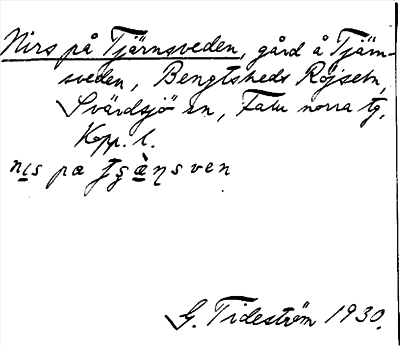 Nirs på Tjärnsveden, gård å Tjärn-
sveden, Bengtsheds Röjsebn,
Svärdsjö sn, Falu norra tg,
Kopp. l.
nis pa ven
G. Tideström 1930.